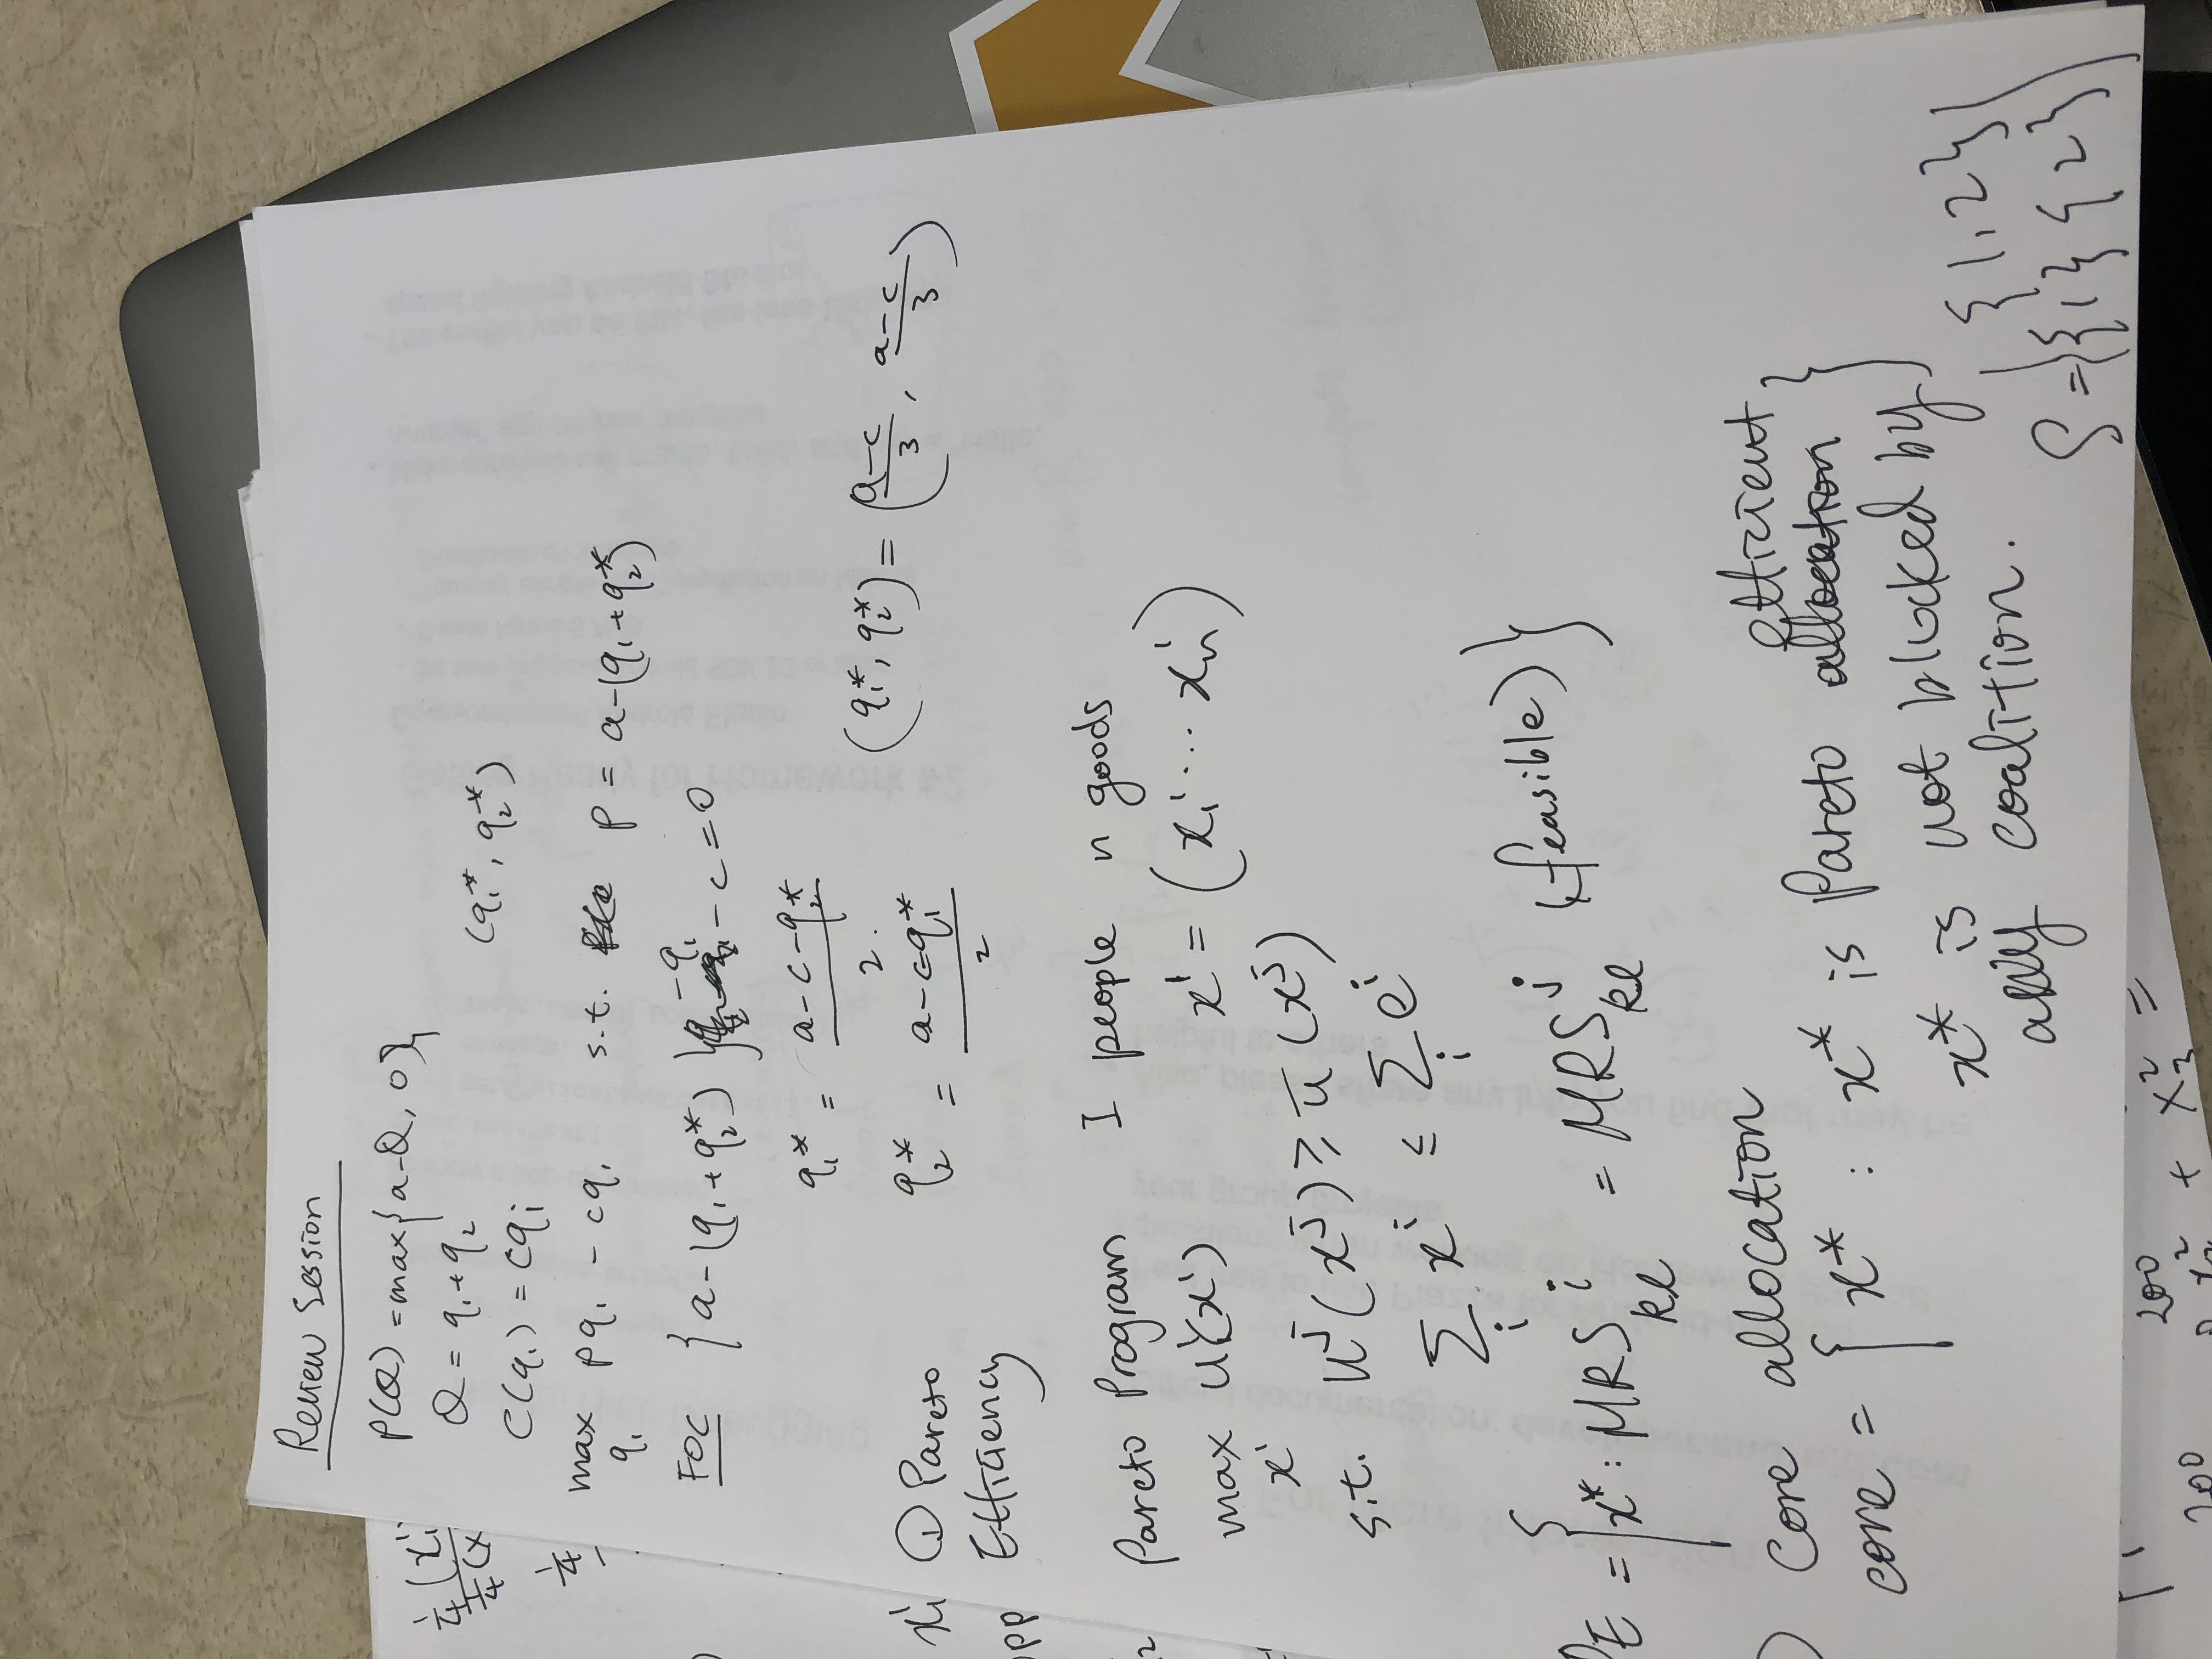 Review Session
P(Q) = max{a-Q, 0},
Q = q₁+q₂
(q₁*, q₂*)
C(qᵢ) = cqᵢ
max pq₁ - cq₁ s.t. p = a-(q₁+q₂*)
q₁
FOC {a-(q₁+q₂*)} -q₁ - c = 0
q₁* = (a-c-q₂*)/2.
q₂* = (a-c-q₁*)/2
(q₁*, q₂*) = ((a-c)/3, (a-c)/3)
① Pareto
Efficiency
Pareto Program I people n goods
max uⁱ(xⁱ) xⁱ = (x₁ⁱ ... xₙⁱ)
xⁱ
s.t. uʲ(xʲ) ≥ ū(xʲ)
∑ᵢ xⁱ ≤ ∑ᵢ eⁱ
PE = {x* : MRSⁱₖₗ = MRSʲₖₗ (feasible)}
Core allocation
core = {x* : x* is Pareto efficient,
x* is not blocked by}
any coalition.
S = ({1,2}
{1} {2})
¼(x₁ⁱ
¼(x
¼
x₁ⁱ
200
200
+ x₃² =